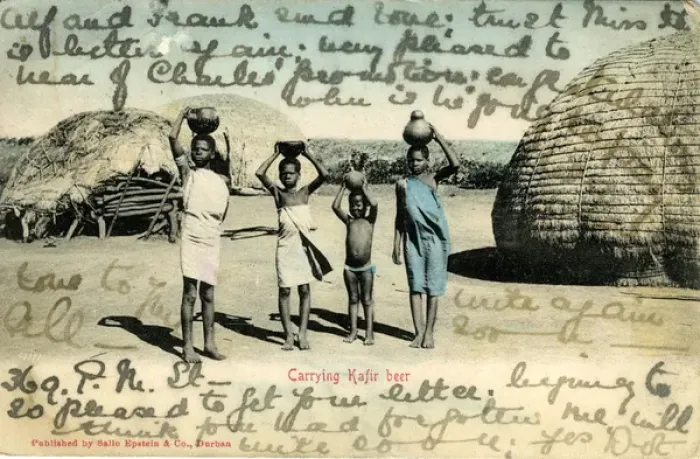 Alf and Frank send love. trust Miss
is better again. very pleased to
hear of Charlie's promotion. congr
when is he go
Love to
All
write again
soon
369. P. M. St—
Carrying Kafir beer
beginning to
So pleased to get your letter.
think you had forgotten me. will
write so yes Dot
Published by Sallo Epstein & Co., Durban